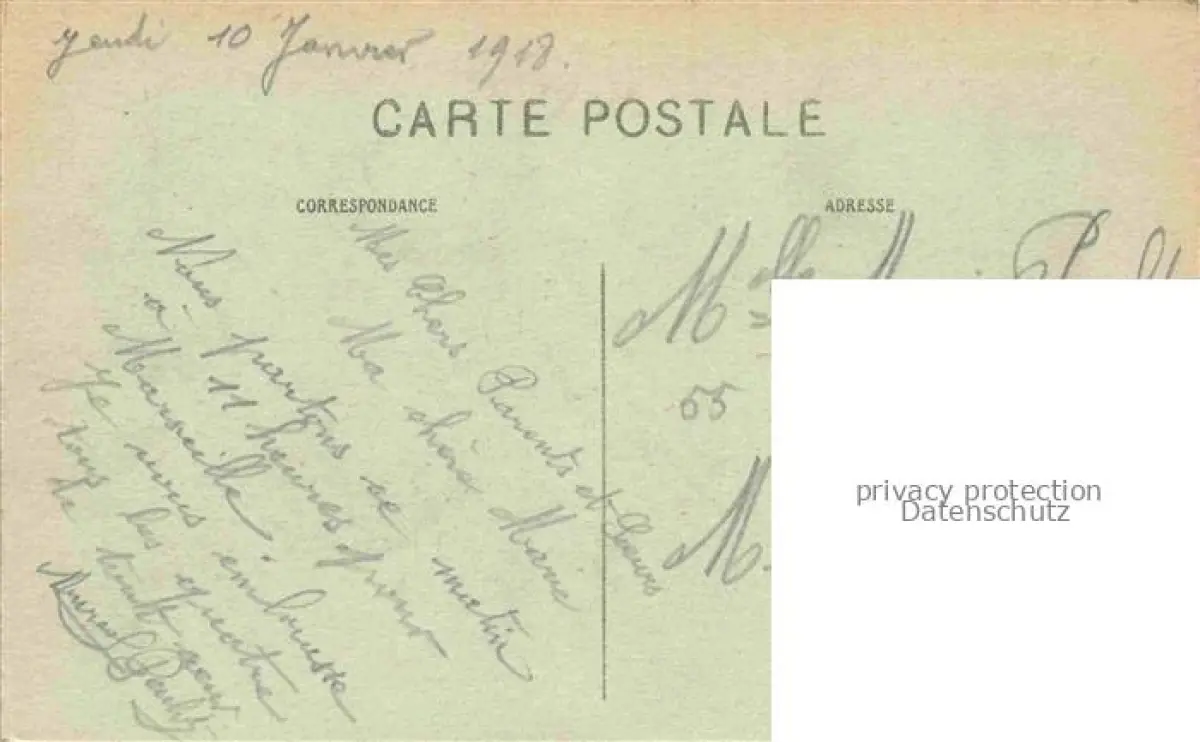 Jeudi 10 Janvier 1918.
CARTE POSTALE
CORRESPONDANCE
ADRESSE
Mes Chers Parents et Soeurs
Ma chère Marie
Nous partons ce matin
à 11 heures pour
Marseille.
Je vous embrasse
tous les quatre
de tout coeur
Melle
55
M.
privacy protection
Datenschutz